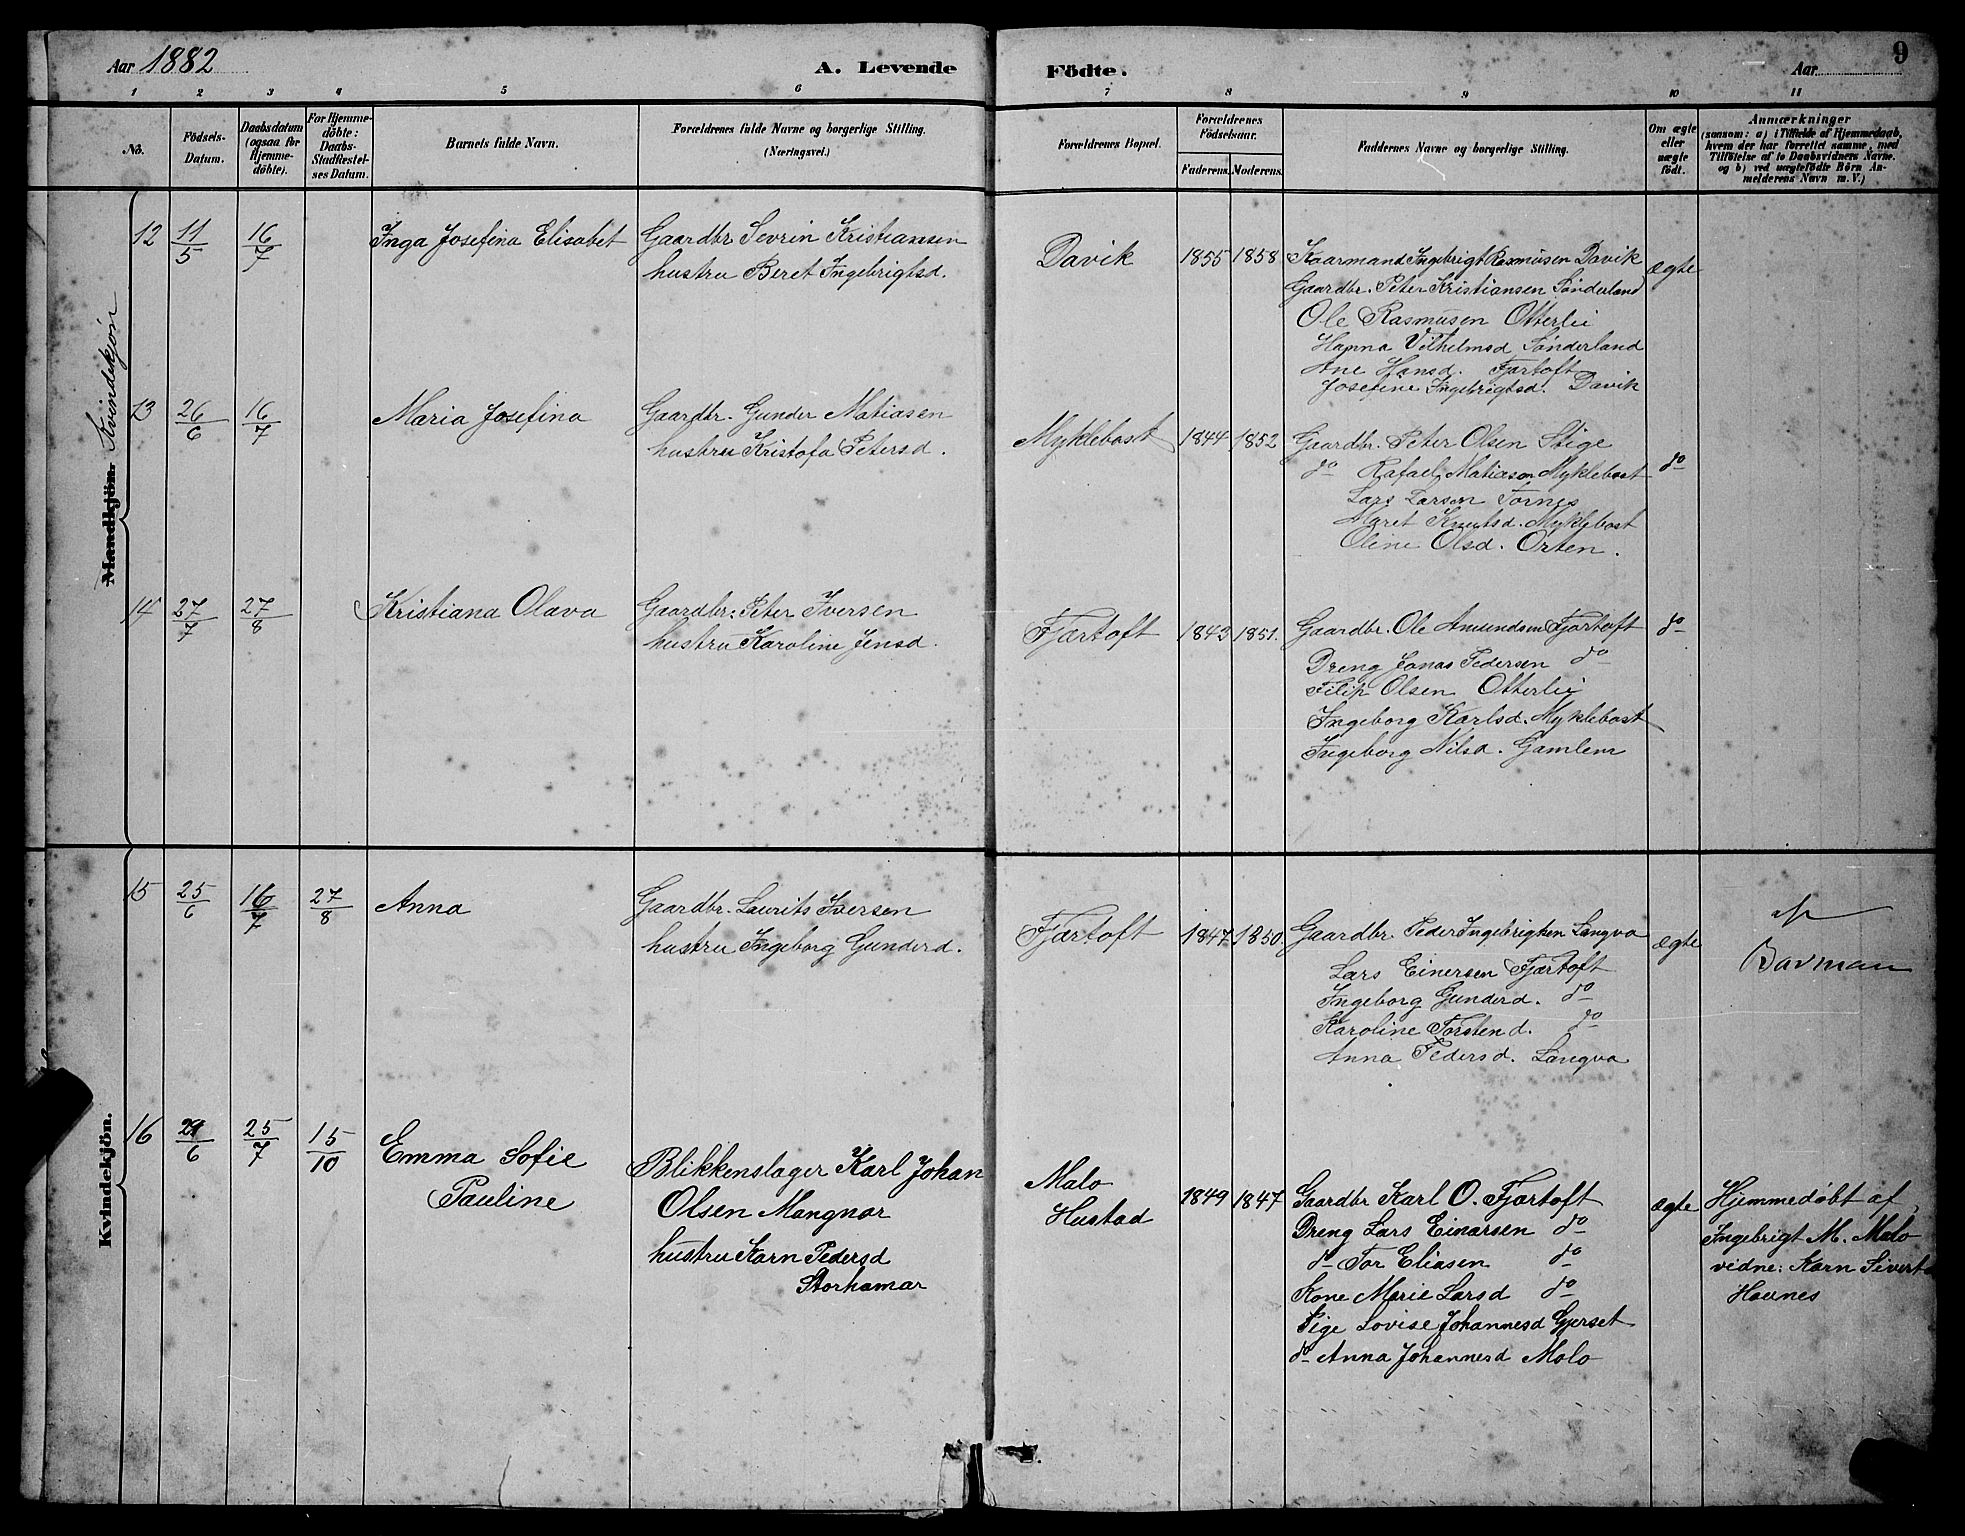 Aar 1882
A. Levende Födte.
Aar
9
1 2 3 4 5 6 7 8 9 10 11
No.
Födsels-
Datum.
Daabsdatum
(ogsaa for
Hjemme-
döbte).
For Hjemme-
döbte:
Daabs-
Stadfæstel-
ses Datum.
Barnets fulde Navn.
Forældrenes fulde Navne og borgerlige Stilling.
(Næringsvei.)
Forældrenes Bopæl.
Forældrenes
Födselsaar.
Faderens. Moderens.
Faddernes Navne og borgerlige Stilling.
Om ægte
eller
uægte
födt.
Anmærkninger
(saasom: a) i Tilfælde af Hjemmedaab,
hvem der har forrettet samme, med
Tilföielse af to Daabsvidners Navne,
og b) ved uægtefödte Börn An-
melderens Navn m. V.)
Mandkjön. Kvindekjön
12 11/5 16/7
Inga Josefina Elisabet
Gaardbr Sevrin Kristiansen
hustru Beret Ingebrigtsd.
Davik
1855 1858
Kaarmand Ingebrigt Rasmusen Davik
Gaardbr. Peter Kristiansen Sönderland
Ole Rasmusen Otterlei
Hanna Vilhelmsd Sönderland
Ane Hansd. Fjærtoft
Josefine Ingebrigtsd. Davik
ægte
13 26/6 16/7
Maria Josefina
Gaardbr. Gunder Matiasen
hustru Kristofa Petersd.
Myklebost
1844 1852
Gaardbr. Peter Olsen Stige
do Rafael Matiasen Myklebost
Lars Larsen Tornes
Maret Knutsd. Myklebost
Oline Olsd. Orten.
do
14 27/7 27/8
Kristiana Olava
Gaardbr. Peter Iversen
hustru Karoline Jensd.
Fjærtoft
1843 1851.
Gaardbr. Ole Amundsen Fjærtoft
Dreng Jonas Pedersen do
Filip Olsen Otterlei
Ingeborg Karlsd. Myklebost
Ingeborg Nilsd. Gamlem
do
Kvindekjön.
15 25/6 16/7 27/8
Anna
Gaardbr. Laurits Iversen
hustru Ingeborg Gunderd.
Fjærtoft
1847 1850.
Gaardbr Peder Ingebrigtsen Langva
Lars Einersen Fjærtoft
Ingeborg Gunderd. do
Karoline Torstend. do
Anna Pedersd. Langva
ægte
af
16 /6 25/7 15/10
Emma Sofie
Pauline
Blikkenslager Karl Johan
Olsen Mangnar
hustru Karn Pedersd
Storhamar
Malo
Hustad
1849 1847
Gaardbr Karl O. Fjærtoft
Dreng Lars Einarsen do
do Tor Eliasen do
Kone Marie Larsd do
Pige Lovise Johannesd Gjerset
do Anna Johannesd Molo
ægte
Hjemmedöbt af
Ingebrigt M. Malo
vidne: Karn Sivert
Havnes